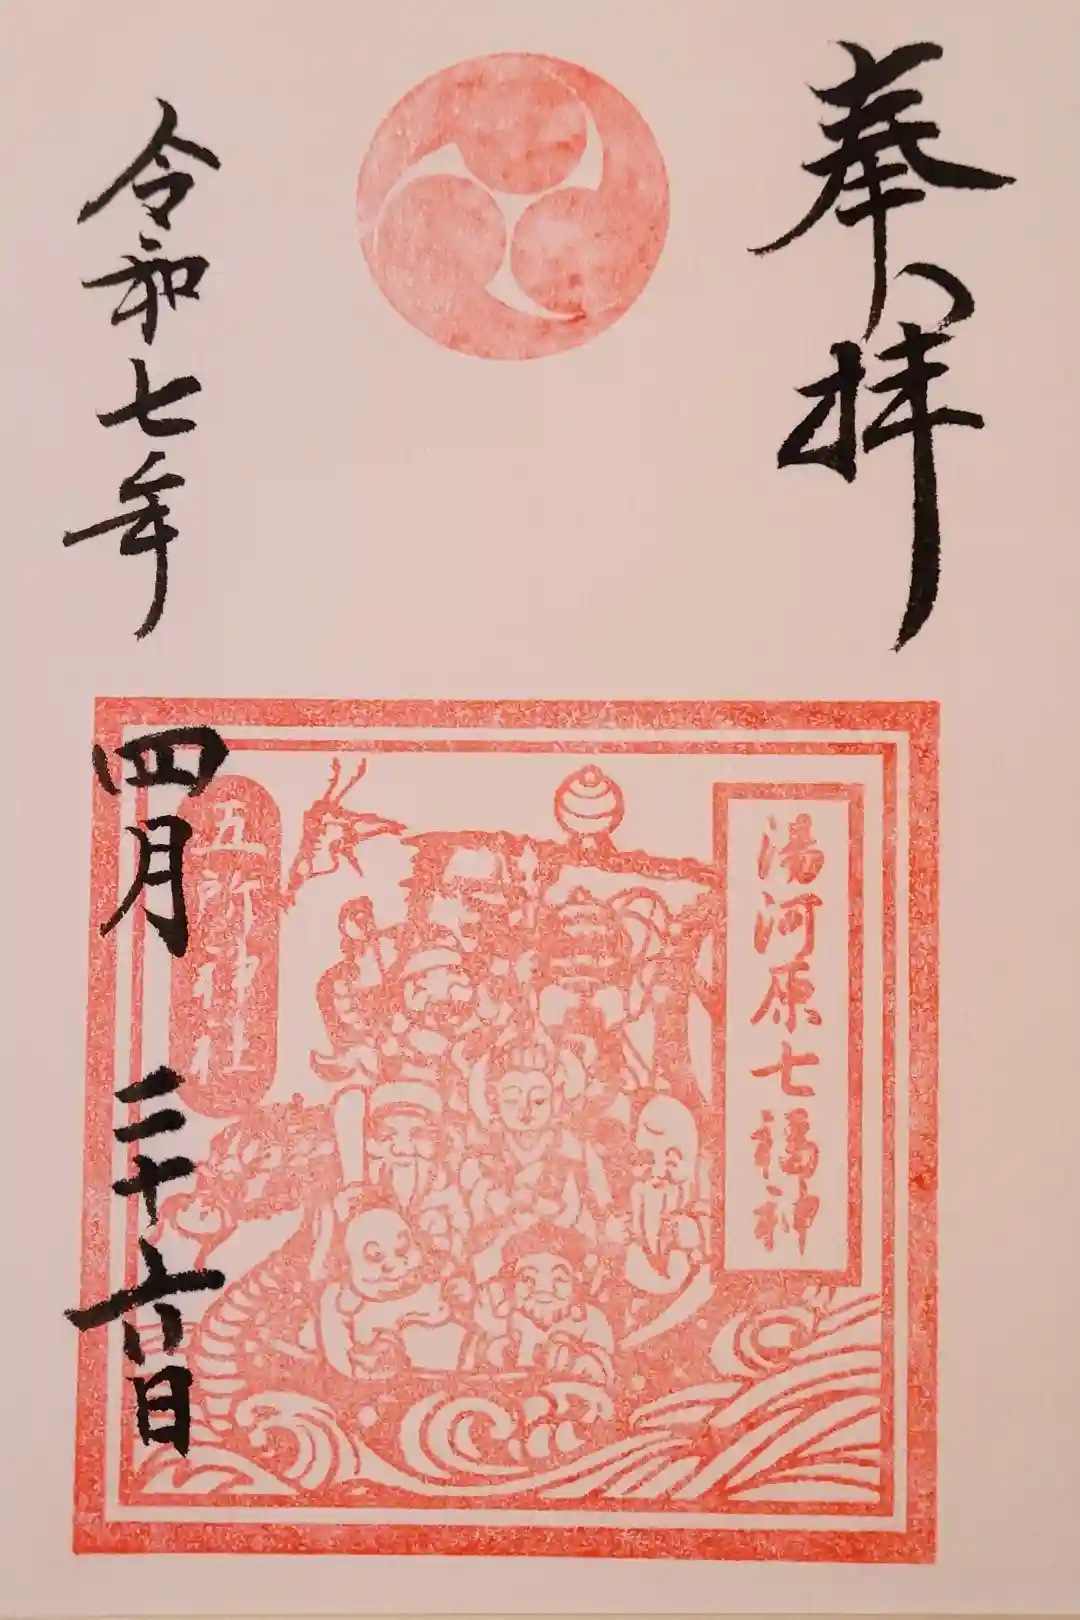 奉拝
湯河原七福神
五所神社
令和七年
四月
二十六日